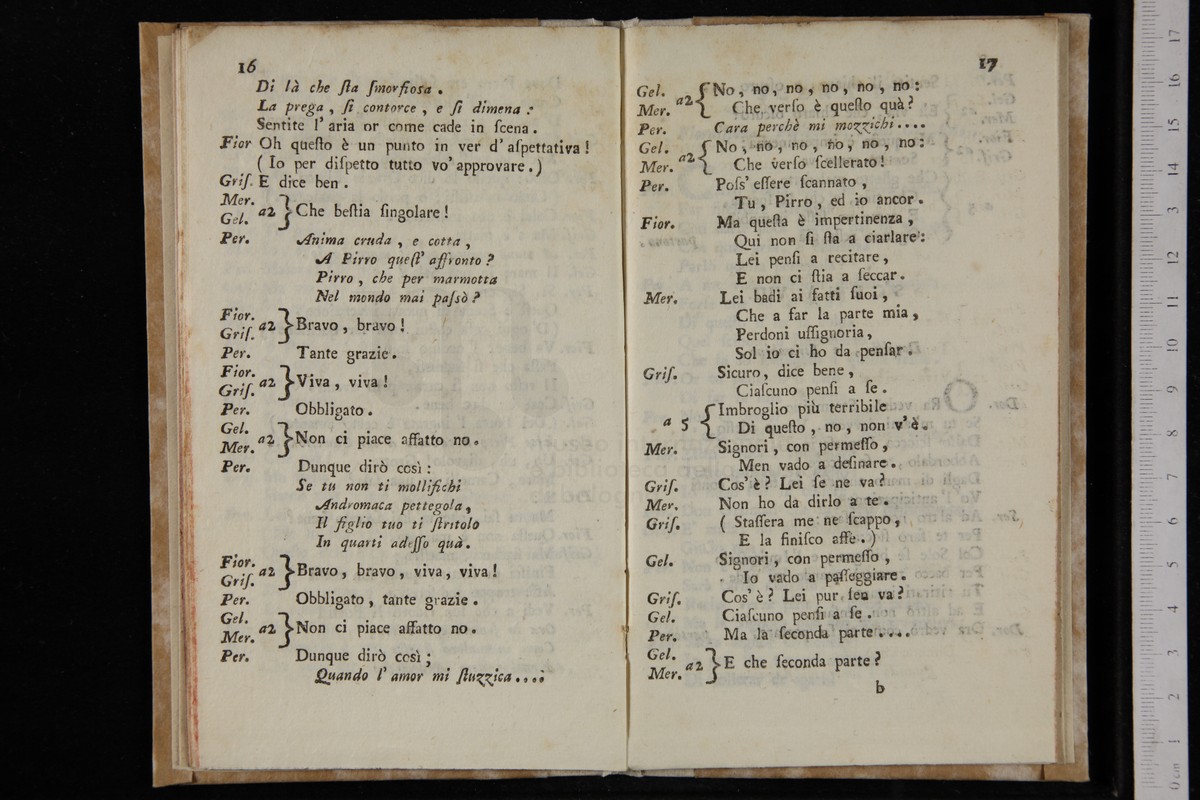 16
Di là che ſta ſmorfioſa .
La prega , ſi contorce , e ſi dimena :
Sentite l' aria or come cade in ſcena .
Fior Oh queſto è un punto in ver d' aſpettativa !
( Io per diſpetto tutto vo' approvare . )
Griſ. E dice ben .
Mer.
Gel. a2 } Che beſtia ſingolare !
Per. Anima cruda , e cotta ,
A Pirro queſt' affronto ?
Pirro , che per marmotta
Nel mondo mai paſsò ?
Fior.
Griſ. a2 } Bravo , bravo !
Per. Tante grazie .
Fior.
Griſ. a2 } Viva , viva !
Per. Obbligato .
Gel.
Mer. a2 } Non ci piace affatto no .
Per. Dunque dirò così :
Se tu non ti mollifichi
Andromaca pettegola ,
Il figlio tuo ti ſtritolo
In quarti adeſſo quà .
Fior.
Griſ. a2 } Bravo , bravo , viva , viva !
Per. Obbligato , tante grazie .
Gel.
Mer. a2 } Non ci piace affatto no .
Per. Dunque dirò così ;
Quando l' amor mi ſtuzzica . . . .
17
Gel.
Mer. a2 { No , no , no , no , no , no :
Che verſo è queſto quà ?
Per. Cara perchè mi mozzichi . . . .
Gel.
Mer. a2 { No , no , no , no , no , no :
Che verſo ſcellerato !
Per. Poſs' eſſere ſcannato ,
Tu , Pirro , ed io ancor .
Fior. Ma queſta è impertinenza ,
Qui non ſi ſta a ciarlare :
Lei penſi a recitare ,
E non ci ſtia a ſeccar .
Mer. Lei badi ai fatti ſuoi ,
Che a far la parte mia ,
Perdoni uſſignoria ,
Sol io ci ho da penſar .
Griſ. Sicuro , dice bene ,
Ciaſcuno penſi a ſe .
a 5 { Imbroglio più terribile
Di queſto , no , non v' è .
Mer. Signori , con permeſſo ,
Men vado a deſinare .
Griſ. Cos' è ? Lei ſe ne va ?
Mer. Non ho da dirlo a te .
Griſ. ( Staſſera me ne ſcappo ,
E la finiſco affè . )
Gel. Signori , con permeſſo ,
Io vado a paſſeggiare .
Griſ. Cos' è ? Lei pur ſen va ?
Gel. Ciaſcuno penſi a ſe .
Per. Ma la ſeconda parte . . . .
Gel.
Mer. a2 } E che ſeconda parte ?
b